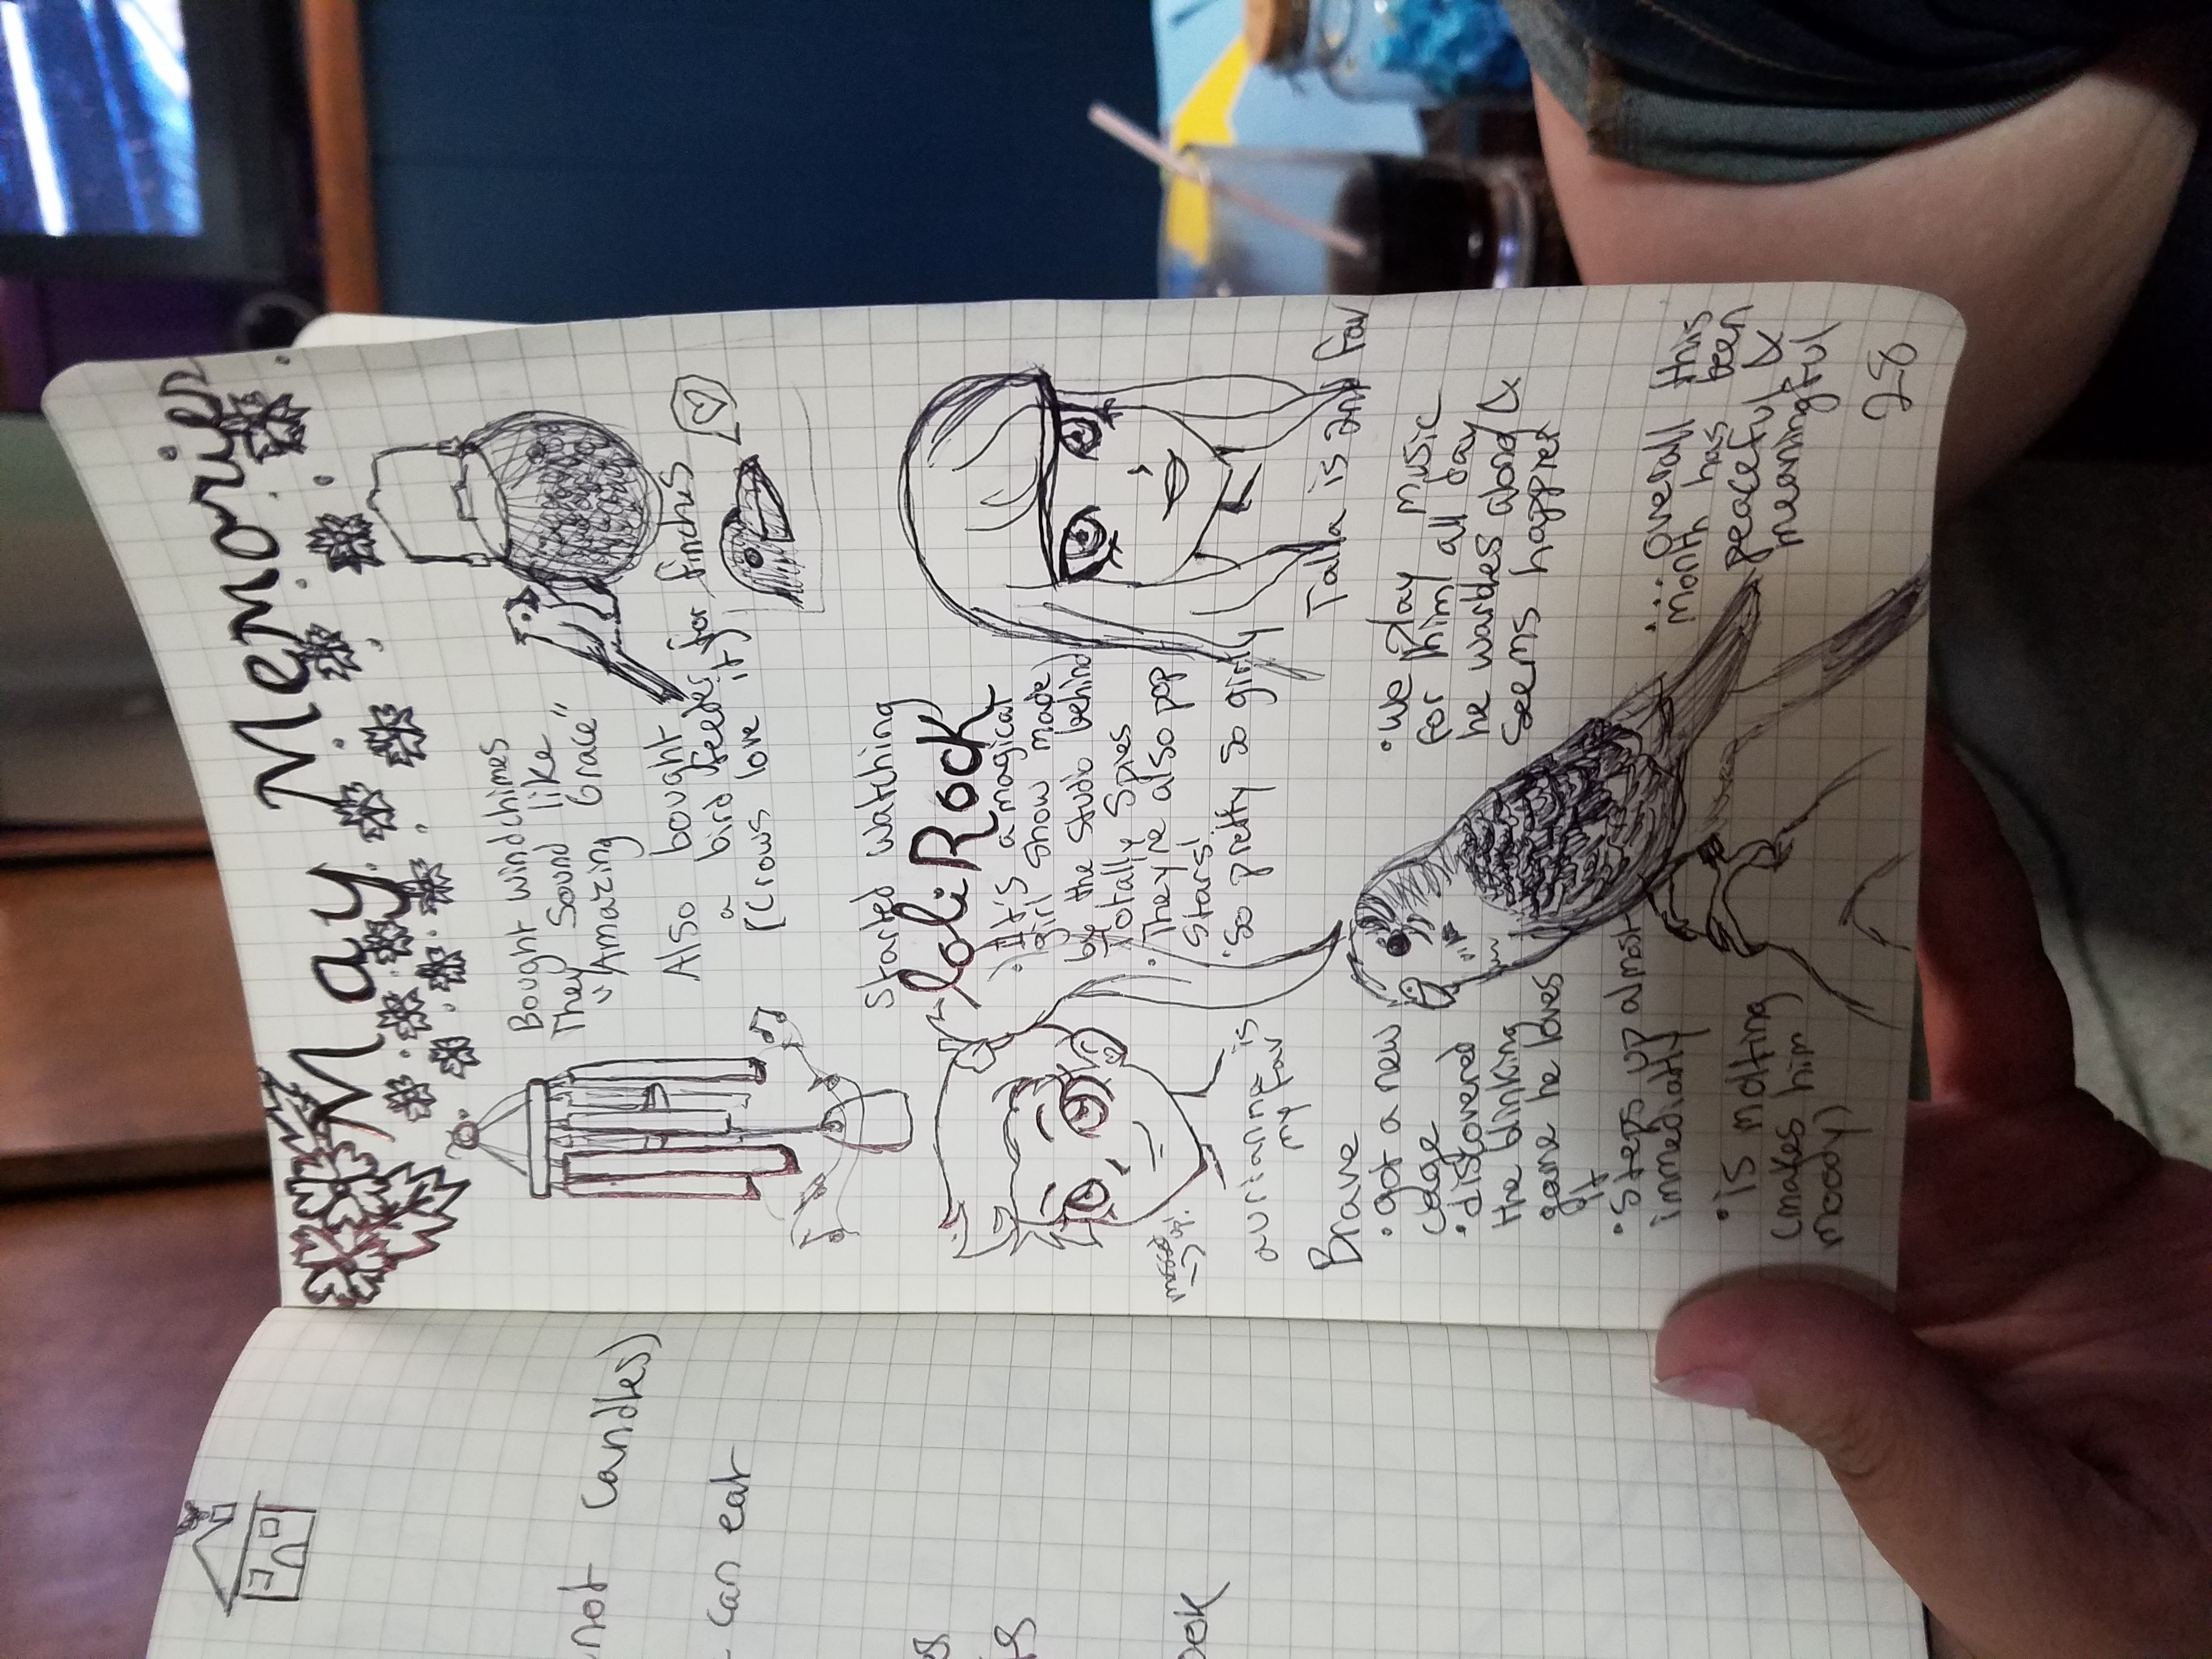 May Memories
Bought windchimes
They sound like
"Amazing Grace"
Also bought
a bird feeder for finches
(Crows love it)
Started watching
LoliRock
• It's a magical
girl show made
by the studio behind
Totally Spies
• They're also pop
stars!
• So pretty so girly
messed
up
aurianna is
my fav
Talia is 2nd fav
Brave
• got a new
cage
• discovered
the blinking
game he loves
it
• Steps up almost
immediatly
• is molting
(makes him
moody)
• We play music
for him all day
he warbles along &
seems happier
Overall this
month has been
peaceful &
meaningful
not candles)
can eat